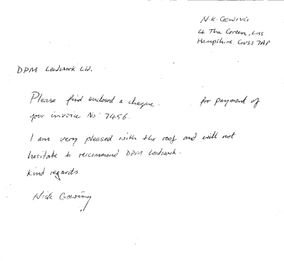 N.K Gowing
The Green, Liss
Hampshire GU33 7AP
DPM Leadwork Ltd.
Please find enclosed a cheque for payment of
your invoice No: 7456.
I am very pleased with the roof and will not
hesitate to reccommend DPM Leadwork.
Kind regards
Nick Gowing